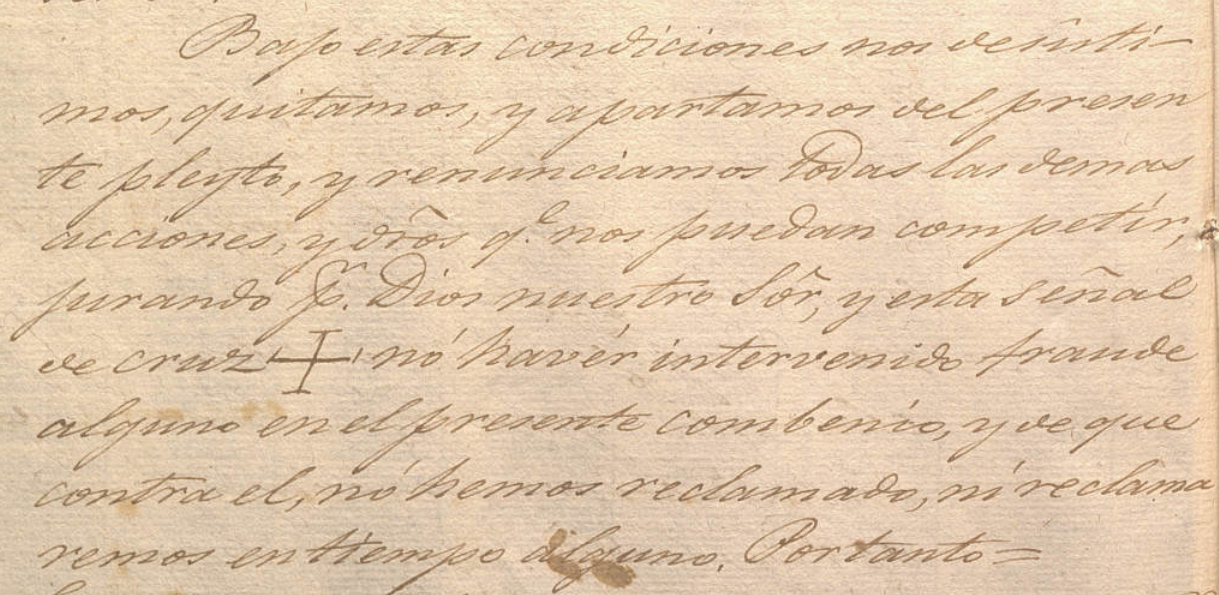 Bajo estas condiciones nos desisti-
mos, quitamos, y apartamos del presen
te pleyto, y renunciamos todas las demas
acciones, y dr̃os q.e nos puedan competír,
jurando p.r Dios nuestro Sõr, y esta señal
de cruz ✝ nó havér intervenido fraude
alguno en el presente combenio, y de que
contra el, nó hemos reclamado, ní reclama
remos en tiempo alguno. Por tanto=